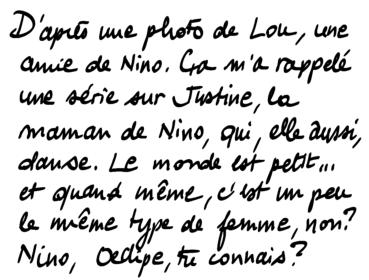 D'après une photo de Lou, une
amie de Nino. Ça m'a rappelé
une série sur Justine, la
maman de Nino, qui, elle aussi,
danse. Le monde est petit...
et quand même, c'est un peu
le même type de femme, non?
Nino, Oedipe, tu connais?